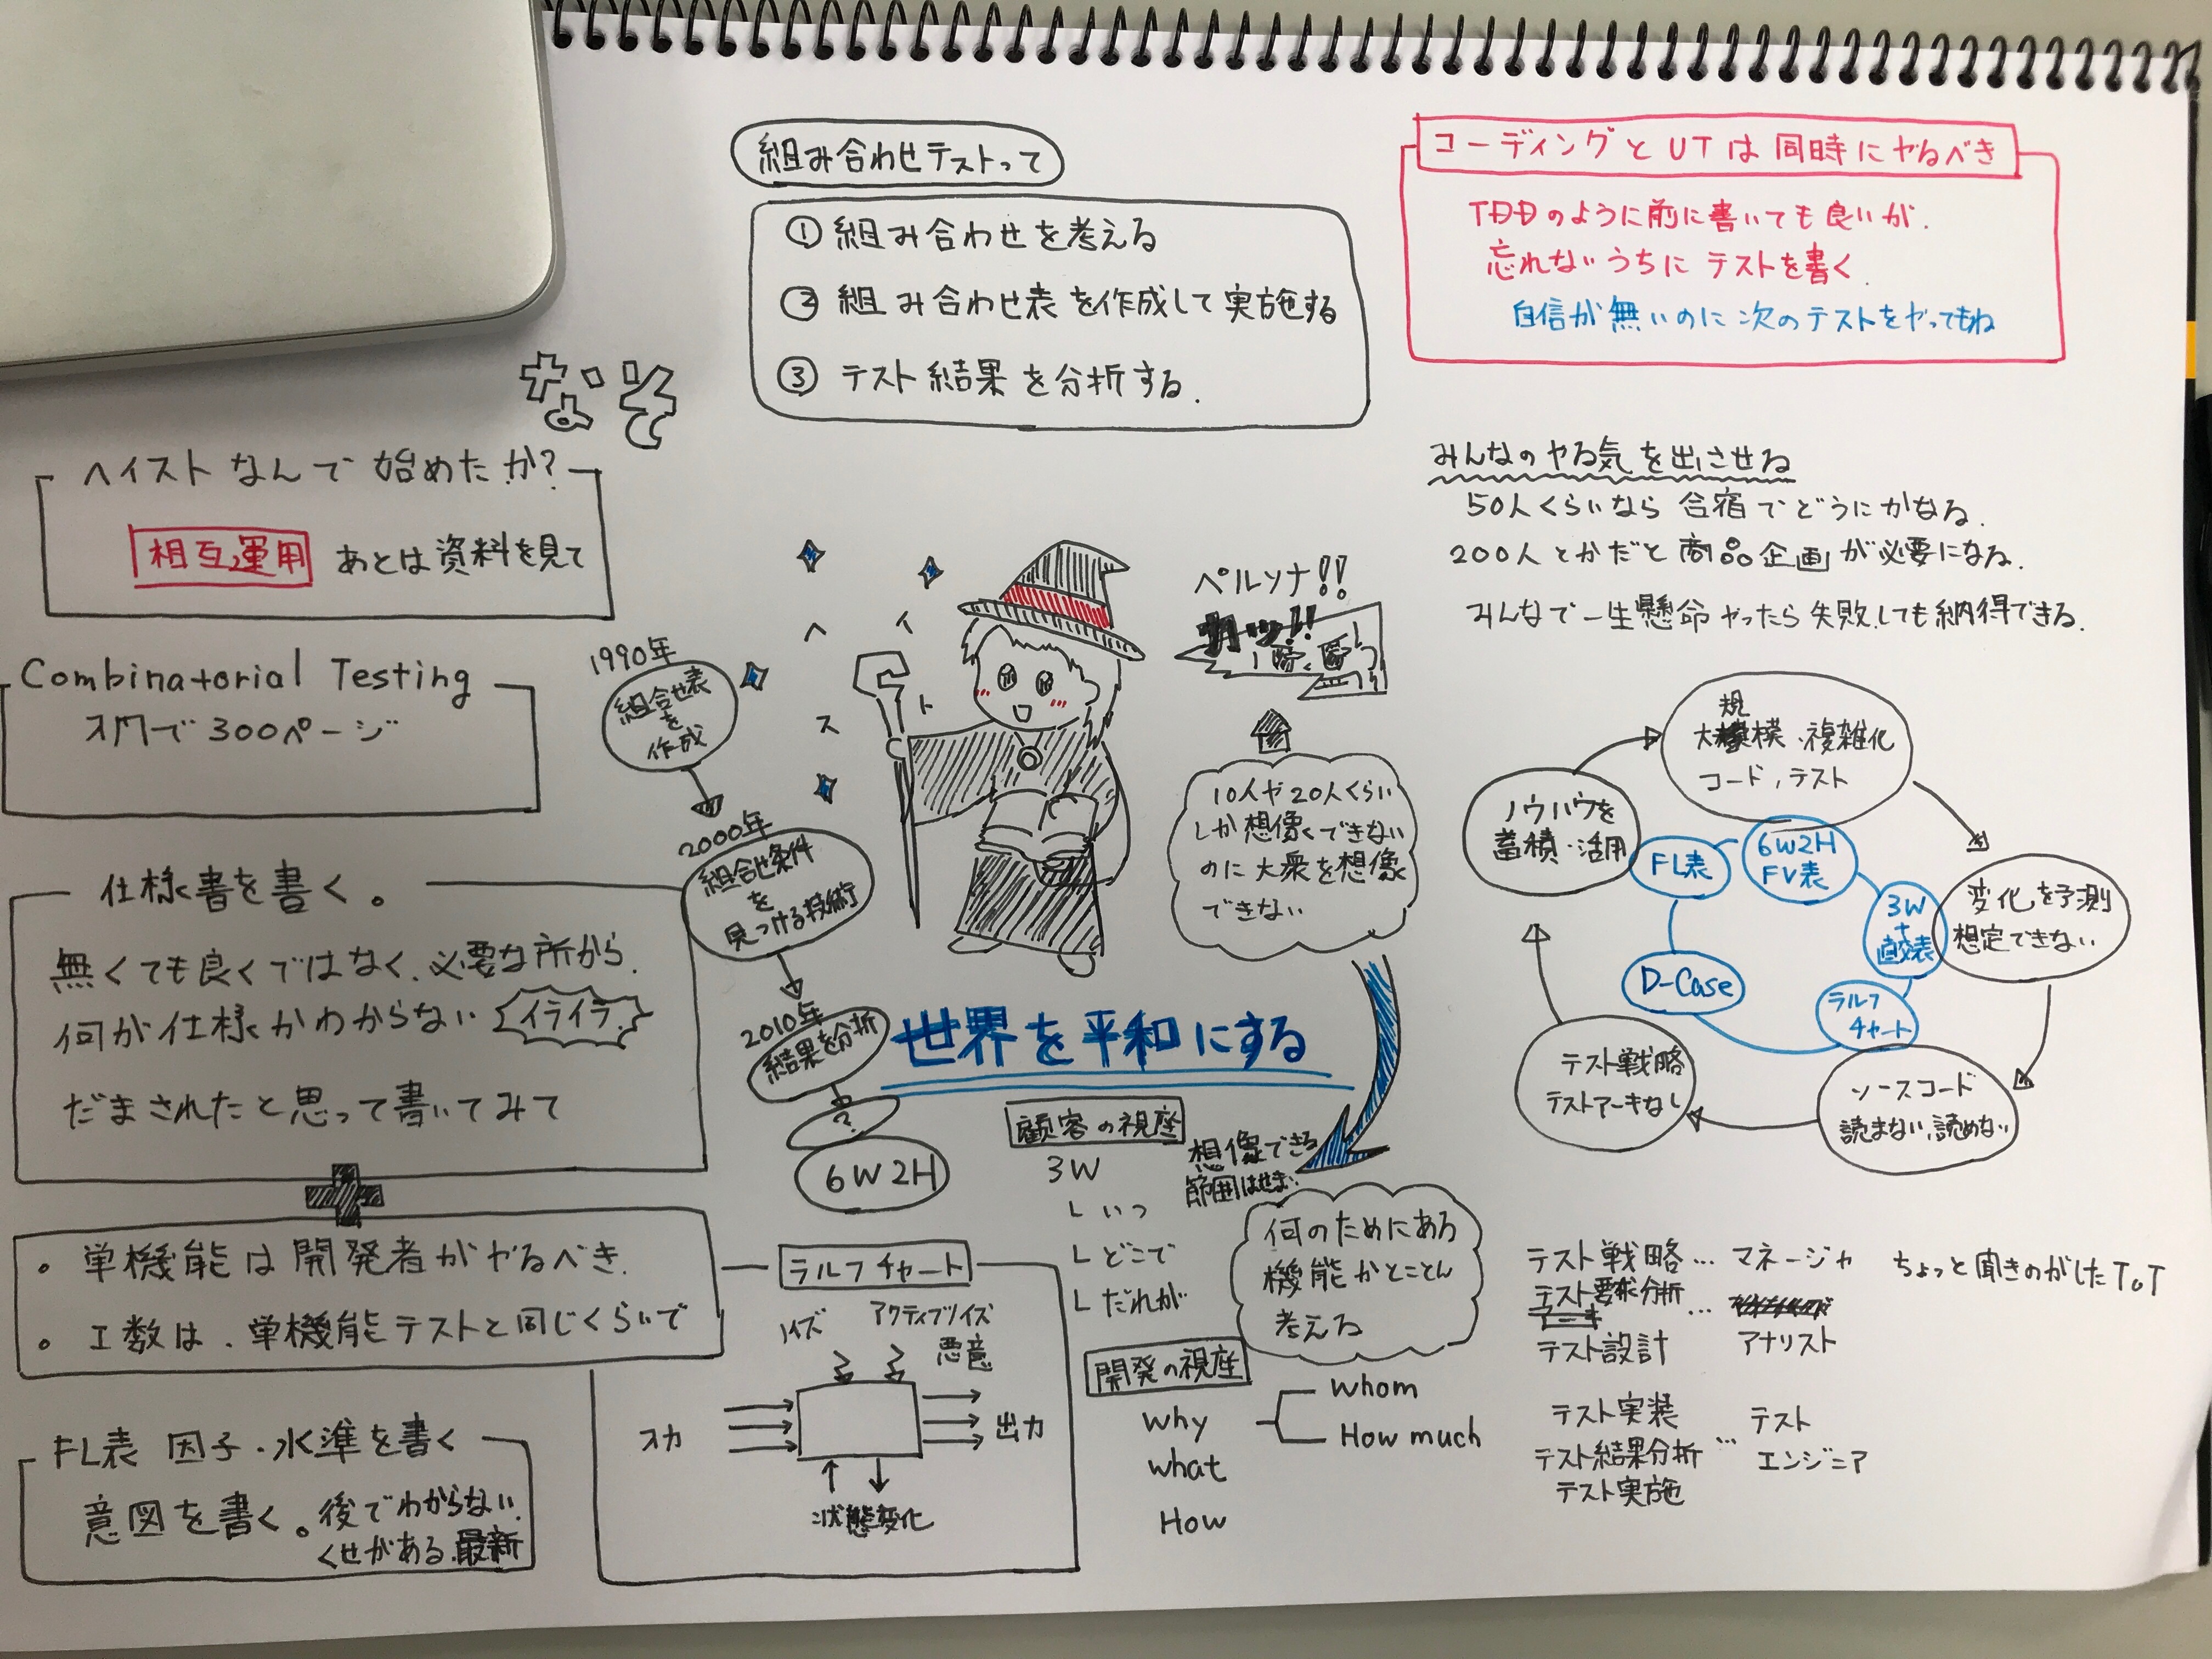 組み合わせテストって
① 組み合わせを考える
② 組み合わせ表を作成して実施する
③ テスト結果を分析する.
コーディングとUTは同時にやるべき
TDDのように前に書いても良いが.
忘れないうちにテストを書く.
自信が無いのに次のテストをやってもね
なぜ
ヘイストなんで始めたか?
相互運用 あとは資料を見て
Combinatorial Testing
300ページ
仕様書を書く。
無くても良くではなく、必要な所から.
何が仕様かわからない イライラ
だまされたと思って書いてみて
・単機能は開発者がやるべき.
・工数は、単機能テストと同じくらいで
FL表 因子・水準を書く
意図を書く。後でわからない.
くせがある.最新
1990年
組合せ表
を
作成
2000年
組合せ条件
を
見つける技術
2010年
結果を分析
?
6W2H
ヘイスト
ペルソナ!!
カッ!!
10人や20人くらい
しか想像できない
のに大衆を想像
できない
世界を平和にする
想像できる
範囲はせまい
何のためにある
機能かとことん
考える
顧客の視座
3W
L いつ
L どこで
L だれが
開発の視座
why
whom
How much
what
How
ラルフチャート
ノイズ
アクティブノイズ
悪意
入力
出力
状態変化
みんなのやる気を出させる
50人くらいなら合宿でどうにかなる.
200人とかだと商品企画が必要になる.
みんなで一生懸命やったら失敗しても納得できる.
大規模・複雑化
コード,テスト
変化を予測
想定できない
ソースコード
読まない,読めない
テスト戦略
テストアーキなし
ノウハウを
蓄積・活用
FL表
6W2H
FV表
3W
+
直交表
ラルフ
チャート
D-Case
テスト戦略… マネージャ ちょっと聞きのがしたToT
テスト要求分析
アーキ …
テスト設計 アナリスト
テスト実装 テスト
テスト結果分析 … エンジニア
テスト実施